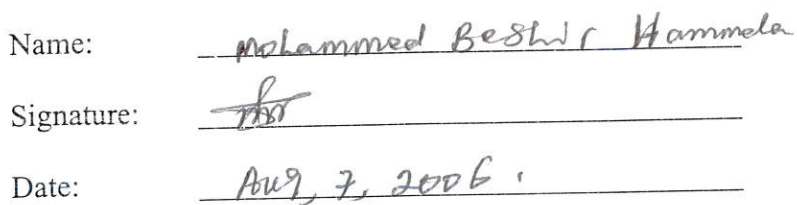 Name: Mohammed Beshir Hammela
Signature:
Date: Aug, 7, 2006.